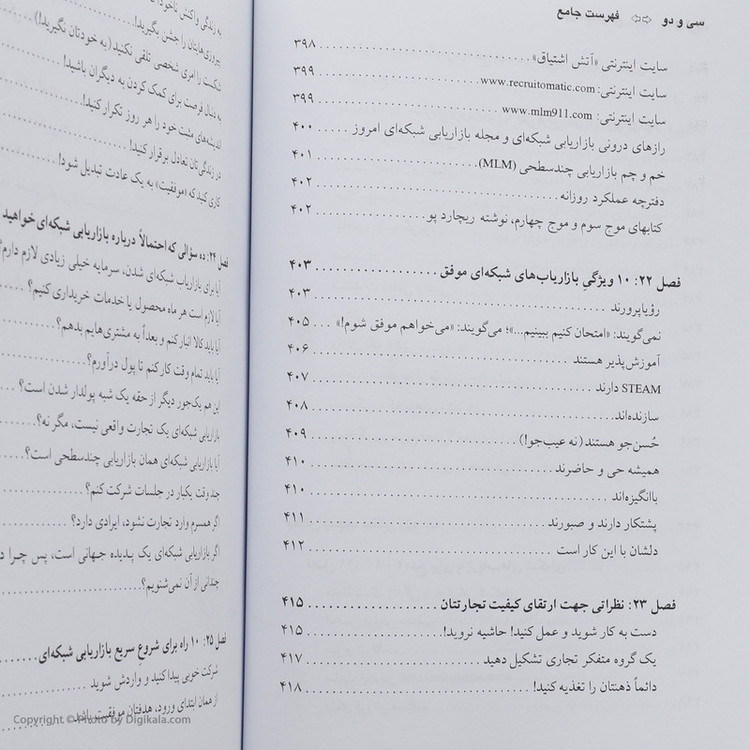 سی و دو ⇦⇨ فهرست جامع
سایت اینترنتی «آتش اشتیاق» ۳۹۸
سایت اینترنتی: www.recruitomatic.com ۳۹۹
سایت اینترنتی: www.mlm911.com ۳۹۹
رازهای درونی بازاریابی شبکه‌ای و مجله بازاریابی شبکه‌ای امروز ۴۰۰
خم و چم بازاریابی چندسطحی (MLM) ۴۰۱
دفترچه عملکرد روزانه ۴۰۲
کتابهای موج سوم و موج چهارم، نوشته ریچارد پو ۴۰۲
فصل ۲۲: ۱۰ ویژگیِ بازاریاب‌های شبکه‌ای موفق ۴۰۳
رؤیاپرورند ۴۰۳
نمی‌گویند: «امتحان کنیم ببینیم...»؛ می‌گویند: «می‌خواهم موفق شوم!» ۴۰۵
آموزش‌پذیر هستند ۴۰۶
STEAM دارند ۴۰۷
سازنده‌اند ۴۰۸
حُسن‌جو هستند (نه عیب‌جو!) ۴۰۹
همیشه حی و حاضرند ۴۱۰
باانگیزه‌اند ۴۱۰
پشتکار دارند و صبورند ۴۱۱
دلشان با این کار است ۴۱۲
فصل ۲۳: نظراتی جهت ارتقای کیفیت تجارتتان ۴۱۵
دست به کار شوید و عمل کنید! حاشیه نروید! ۴۱۵
یک گروه متفکر تجاری تشکیل دهید ۴۱۷
دائماً ذهنتان را تغذیه کنید! ۴۱۸
پیروزی‌هایتان را جشن بگیرید!
شکست را امری شخصی تلقی نکنید (به خودتان نگیرید!)
به دنبال فرصت برای کمک کردن به دیگران باشید!
اندیشه‌های مثبت خود را هر روز تکرار کنید!
در زندگی‌تان تعادل برقرار کنید!
کاری کنید که «موفقیت» به یک عادت تبدیل شود!
فصل ۲۴: ده سؤالی که احتمالاً درباره بازاریابی شبکه‌ای خواهید
آیا برای بازاریاب شبکه‌ای شدن، سرمایه خیلی زیادی لازم دارم؟
آیا لازم است هر ماه محصول یا خدمات خریداری کنیم؟
آیا باید کالا انبار کنم و بعداً به مشتری‌هایم بدهم؟
آیا باید تمام وقت کار کنم تا پول درآورم؟
این هم یک‌جور دیگر از حقه یک شبه پولدار شدن است؟
بازاریابی شبکه‌ای یک تجارت واقعی نیست، مگر نه؟
آیا بازاریابی شبکه‌ای همان بازاریابی چندسطحی است؟
چند وقت یکبار در جلسات شرکت کنم؟
اگر همسرم وارد تجارت نشود، ایرادی دارد؟
اگر بازاریابی شبکه‌ای یک پدیده جهانی است، پس چرا
چندانی از آن نمی‌شنویم؟
فصل ۲۵: ۱۰ راه برای شروع سریع بازاریابی شبکه‌ای
شرکت خوبی پیدا کنید و واردش شوید
از همان ابتدای ورود، هدفتان موفقیت باشد
Copyright © Photo by Digikala.com